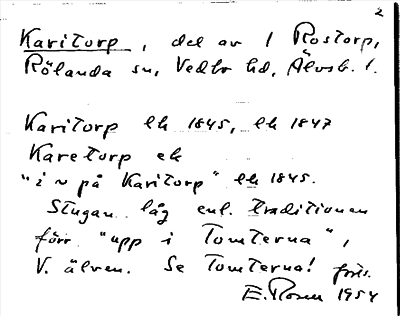 2
Karitorp, del av 1 Rostorp,
Rölanda sn, Vedbo hd, Älvsb. l.
Karitorp lh 1845, lh 1847
Karetorp ek
"i ~ på Karitorp" lh 1845.
Stugan låg enl. traditionen
förr "upp i Tomterna",
V. älven. Se Tomterna! forts.
E. Rosen 1954